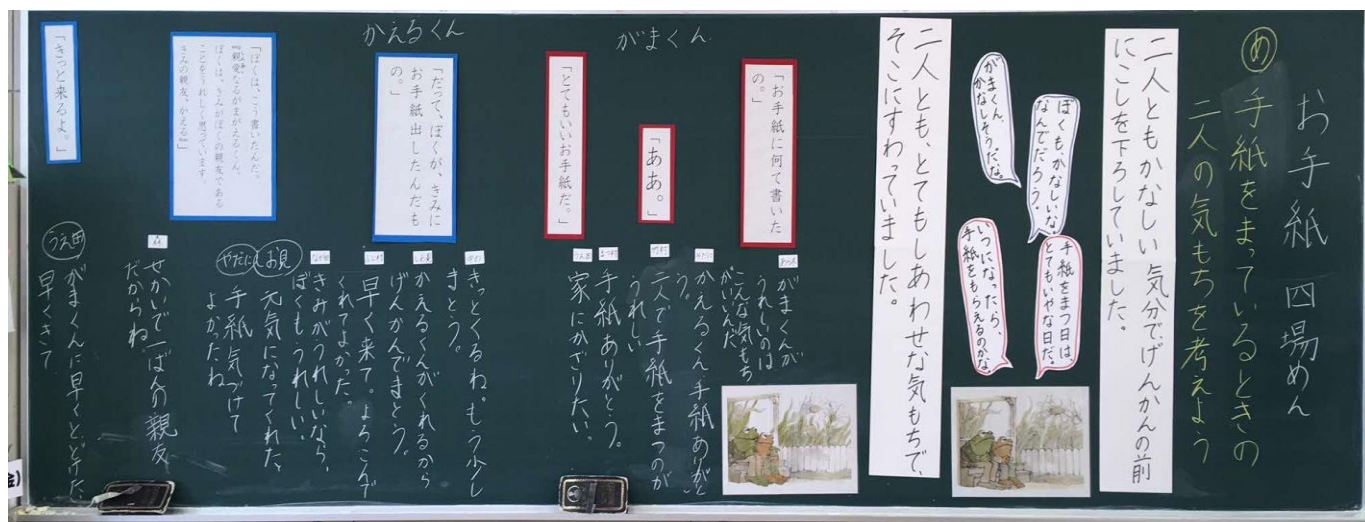 お手紙 四場めん
め 手紙をまっているときの
二人の気もちを考えよう
二人ともかなしい気分で、げんかんの前
にこしを下ろしていました。
ぼくも、かなしいな。
なんでだろう。
がまくん、
かなしそうだな。
手紙をまつ日は、
とてもいやな日だ。
いつになったら、
手紙をもらえるのかな。
二人とも、とてもしあわせな気もちで、
そこにすわっていました。
がまくん
「お手紙に何て書いた
の。」
「ああ。」
「とてもいいお手紙だ。」
がまくんが
うれしいのは
こんな気もち
がいいんだ
かえるくん手紙ありがと
う。
二人で手紙をまつのが
うれしい
手紙ありがとう。
家にかざりたい。
かえるくん
「だって、ぼくが、きみに
お手紙出したんだも
の。」
「ぼくは、こう書いたんだ。
『親愛なるがまがえるくん。
ぼくは、きみがぼくの親友である
ことをうれしく思っています。
きみの親友、かえる』」
「きっと来るよ。」
きっとくるね。もう少し
まとう。
かえるくんがくれるから
げんかんでまとう。
早く来て。よろこんで
くれてよかった。
きみがうれしいなら、
ぼくもうれしい。
お見
元気になってくれた、
やだに
手紙気づけて
よかったね
森
せかいで一ばんの親友
だからね
うえ田
がまくんに早くとどけた、
早くきて